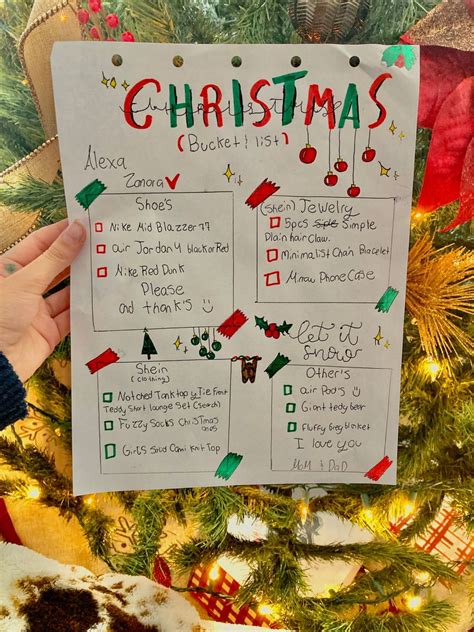 CHRISTMAS
(Bucket list)
Alexa
Zanara
Shoe's
Nike Mid Blazzer 77
air Jordan 4 black or Red
Nike Red Dunk
Please
and thank's
(Shein) Jewelry
5pcs Simple
Plain hair Claw.
Minimalist Chain Bracelet
Phone Case
let it
snow
Shein
(Clothing)
Notched Tank top y Tie Front
Teddy Short lounge Set (Search)
Fuzzy Socks Christmas
ones
Girls Solid Cami Knit Top
Other's
air Pod's
Giant teddy bear
Fluffy Grey blanket
I love you
Mom + Dad